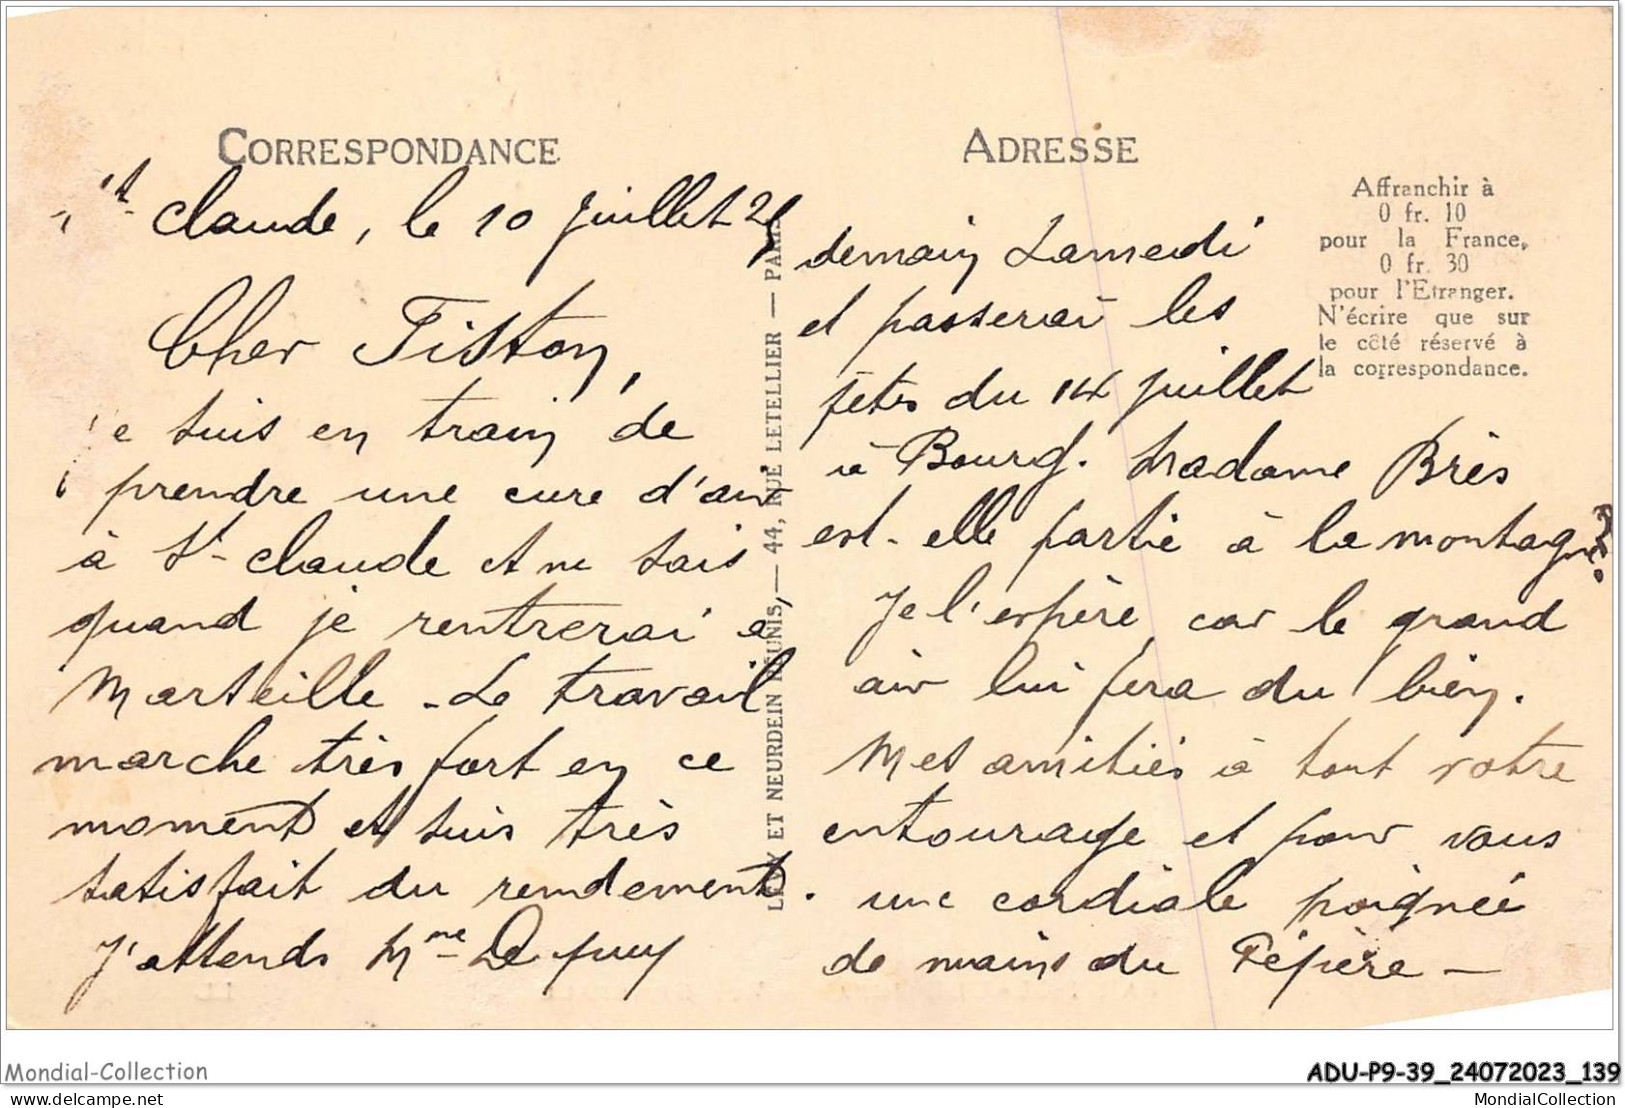 CORRESPONDANCE
St-Claude, le 10 juillet 25
Cher Fiston,
Je suis en train de
prendre une cure d'air
à St-Claude et ne sais
quand je rentrerai à
Marseille - Le travail
marche très fort en ce
moment et suis très
satisfait du rendement.
J'attends Mme
LEVY ET NEURDEIN RÉUNIS, — 44, RUE LETELLIER — PARIS
ADRESSE
Affranchir à
0 fr. 10
pour la France,
0 fr. 30
pour l'Etranger.
N'écrire que sur
le côté réservé à
la correspondance.
demain Samedi
et passerai les
fêtes du 14 juillet
à Bourg. Madame Brès
est-elle partie à la montagne?
Je l'espère car le grand
air lui fera du bien.
Mes amitiés à tout votre
entourage et pour vous
une cordiale poignée
de mains du Pépère —
Mondial-Collection
ADU-P9-39_24072023_139
delcampe.net
MondialCollection